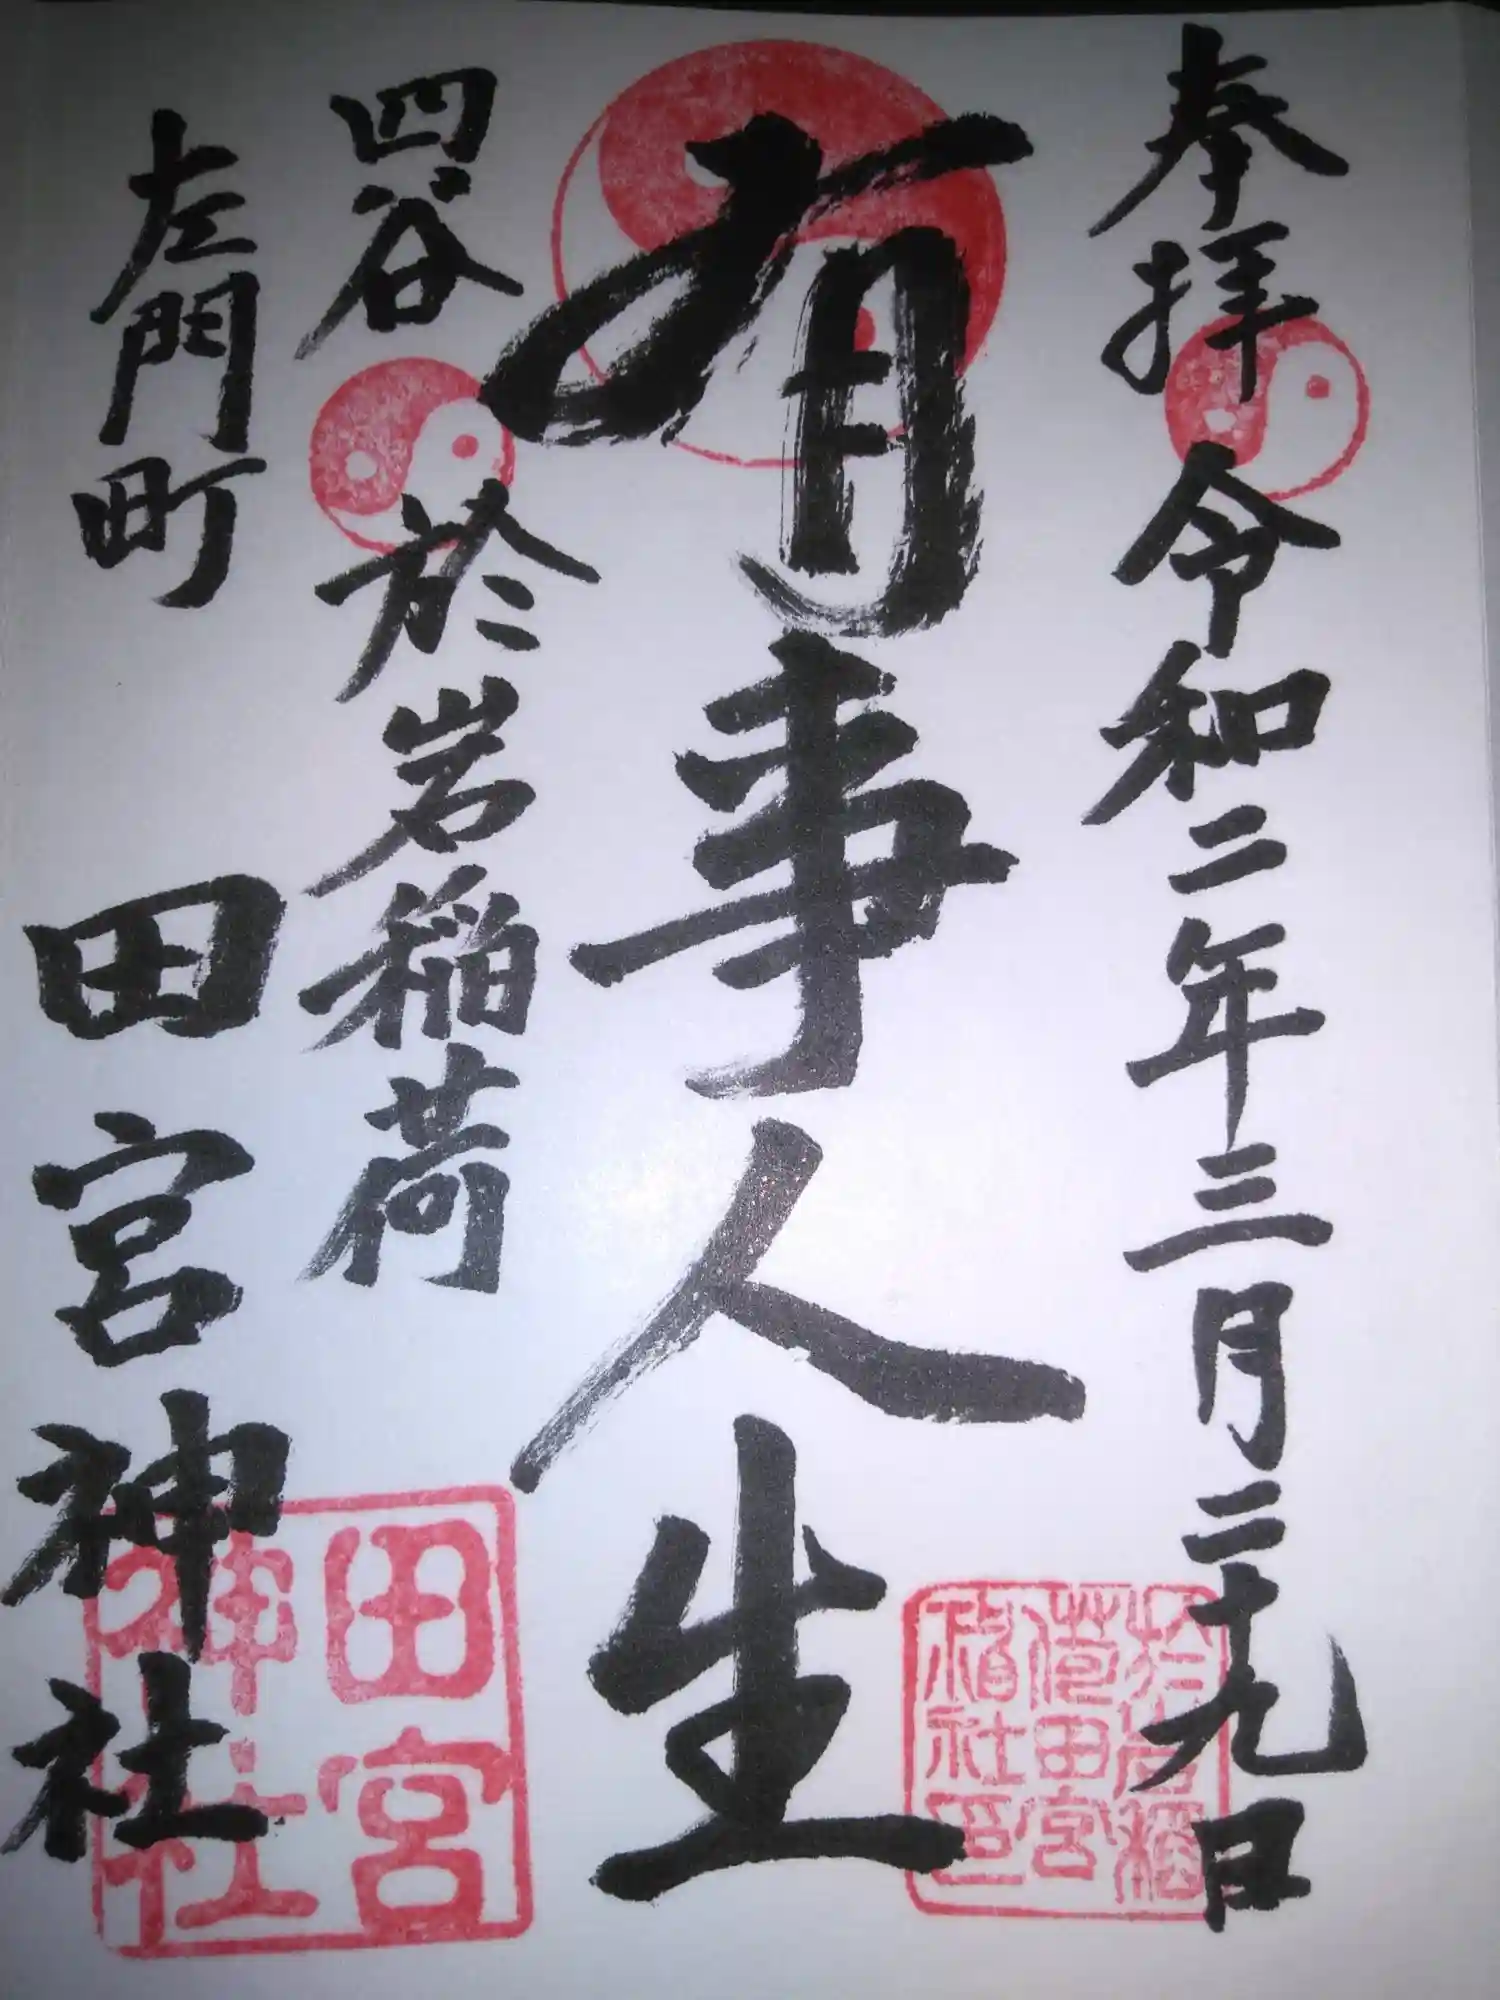 奉拝 令和二年三月二十九日
有事人生
四谷 於岩稲荷
左門町 田宮神社
田宮
神社
於岩稲
荷田宮
社印